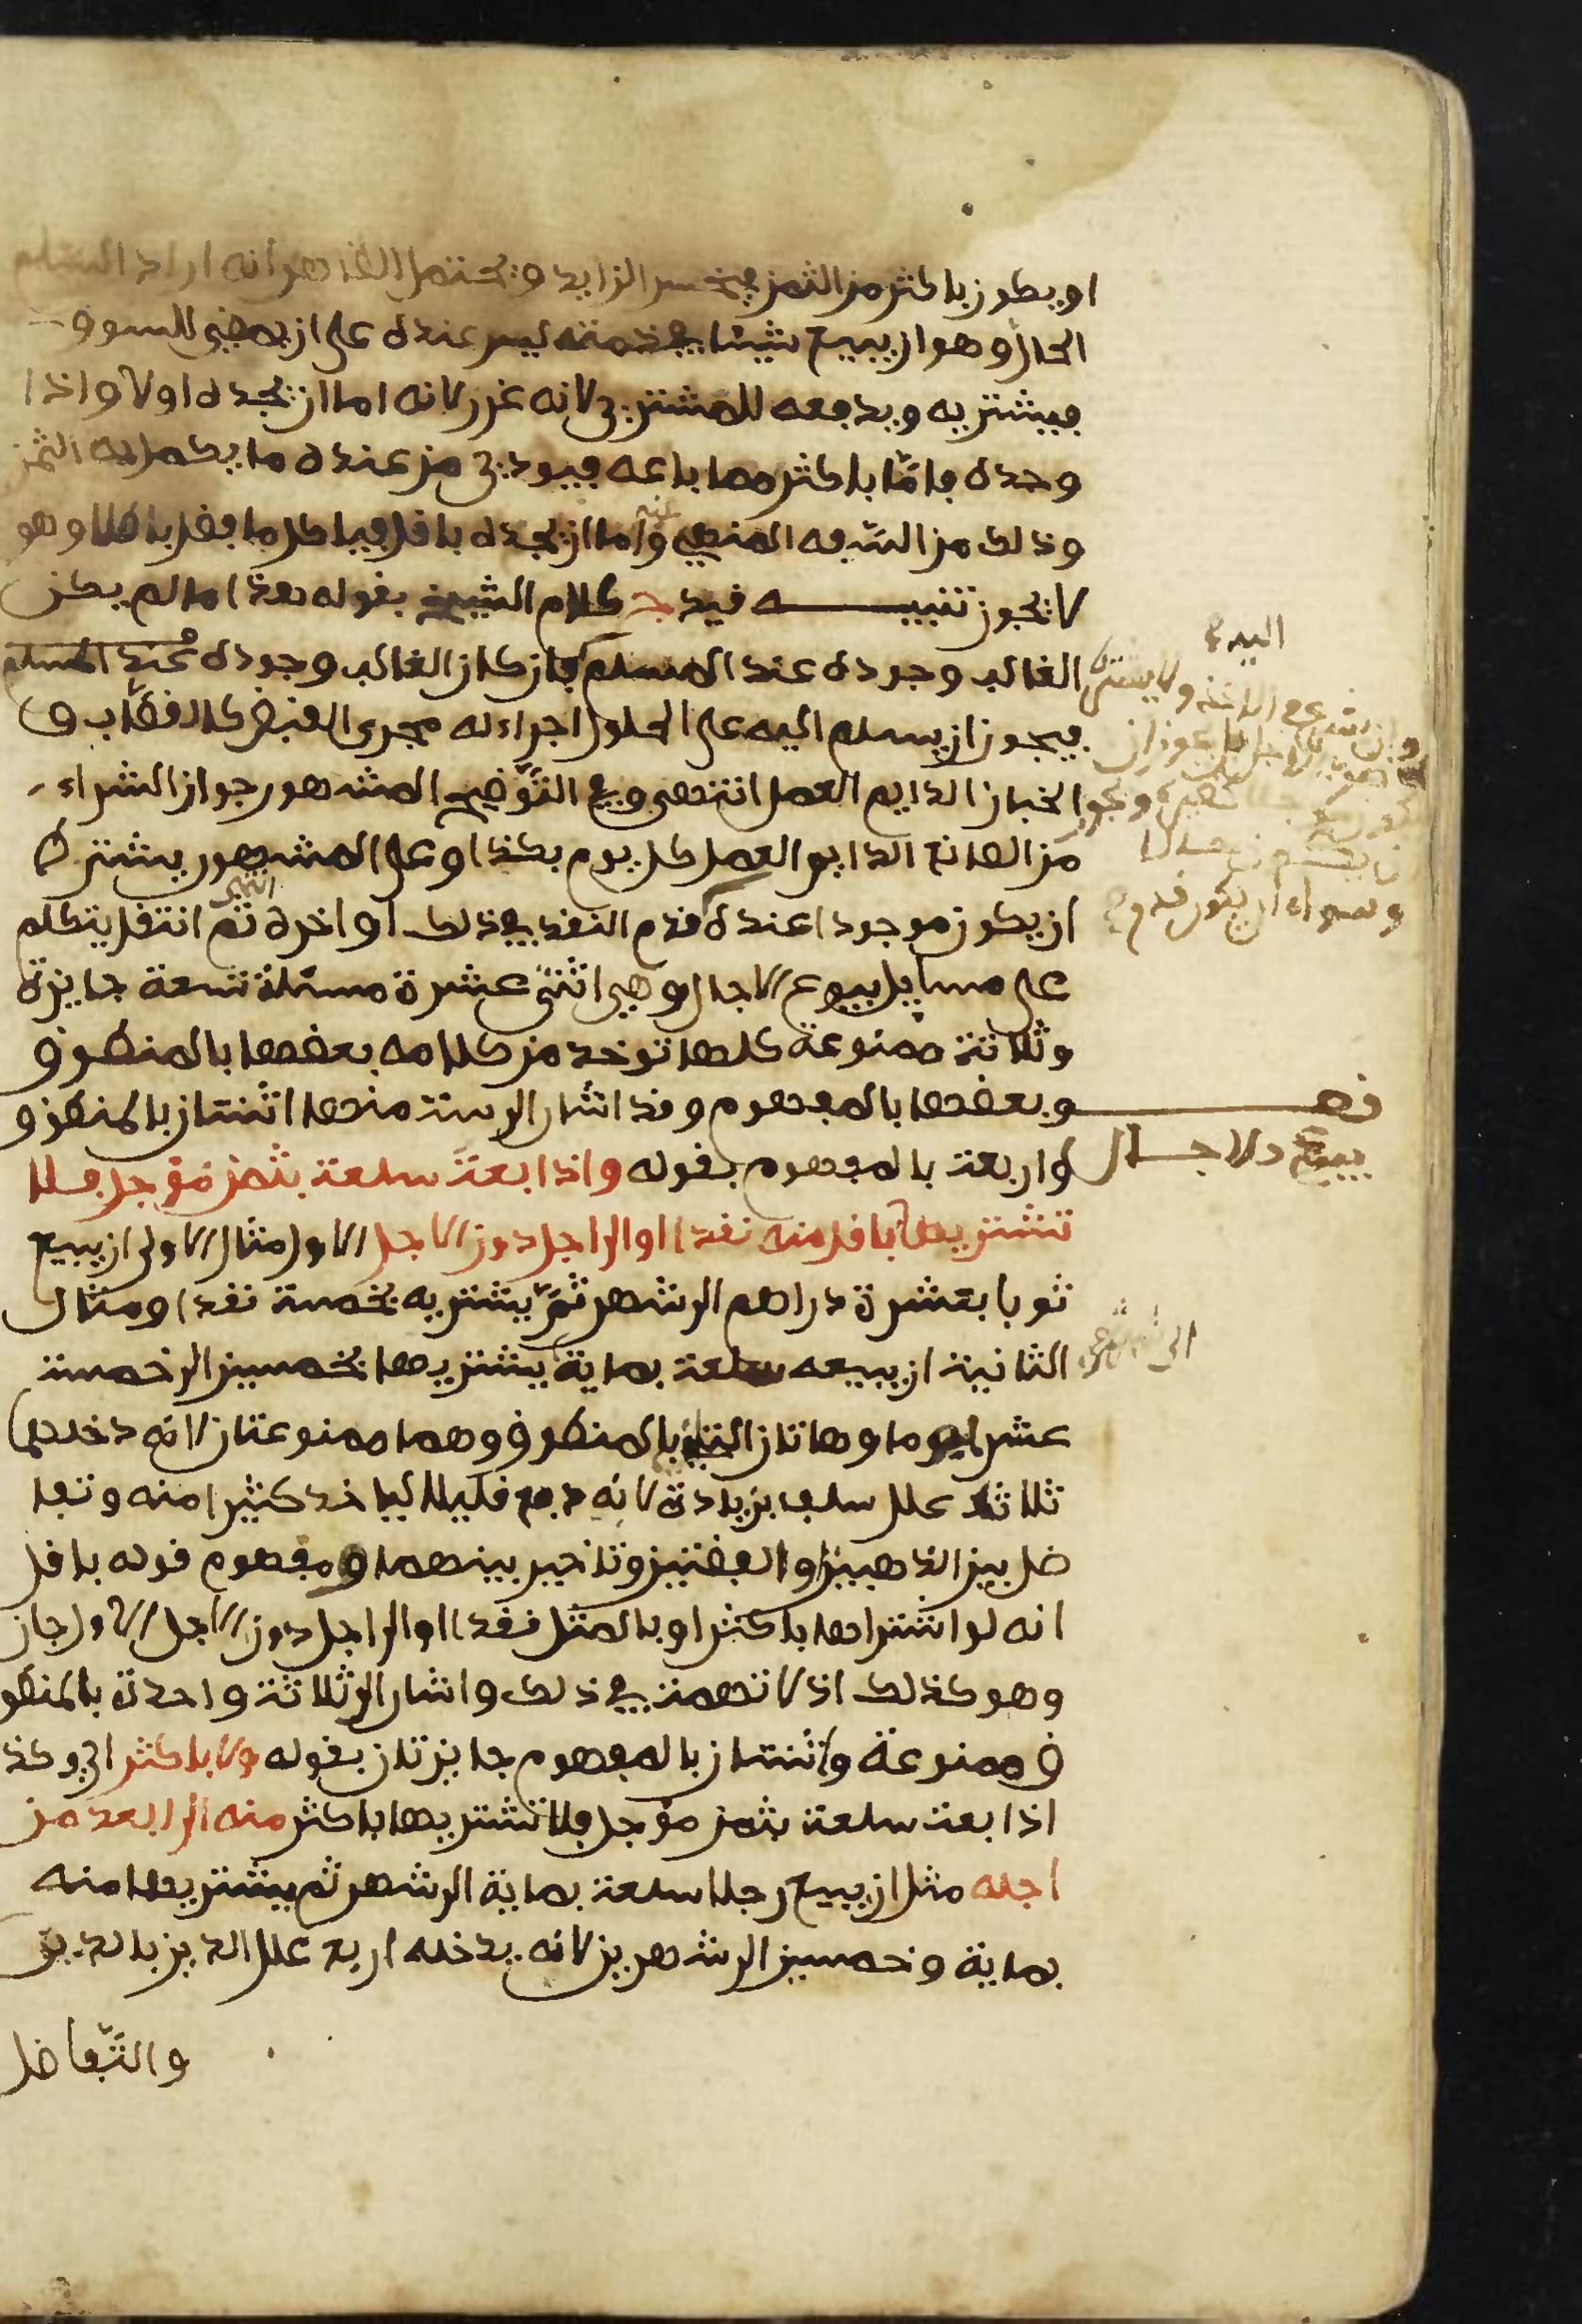 او يكون باكثر من الثمن فيخسر الزايد ويحتمل الظاهر انه اراد السلم
الحال وهو ان يبيع شيئا في ذمته ليس عنده على ان يمضي للسوق
فيشتريه ويدفعه للمشتري لانه غرر لانه اما ان يجده او لا واذا
وجده فامّا باكثر مما باعه فيودي من عنده ما يكمل به الثمن
وذلك من السّفه المنهي عنه واما ان يجده باقل فياكل ما بقي باطلا وهو
لا يجوز تنبيــــه قيد ج كلام الشيخ بقوله هذا ما لم يكن
الغالب وجوده عند المسلم فان كان الغالب وجوده عند المسلم
اليه
فيجوز ان يسلم اليه على الحلول اجراء له مجرى القبض كالقصّاب و
الخباز الدايم العمل انتهى وفي التّوْضيح المشهور جواز الشراء
من الصانع الدايم العمل كل يوم بكذا وعلى المشهور يشترط
ان يكون موجودا عنده قدم النقد في ذلك او اخره انتهى ثم انتقل يتكلم
وسواء ان يكون قدم
على مسايل بيوع الاجال وهي اثنتى عشرة مسئلة تسعة جايزة
وثلاثة ممنوعة كلها توخد من كلامه بعضها بالمنطوق
وبعضها بالمفهوم وقد اشار الى ستة منها اثنتان بالمنطوق
فصــــل
بيوع الاجــــال
واربعة بالمفهوم بقوله واذا بعتَ سلعة بثمن مؤجل فلا
تشتريها باقل منه نقدا او الى اجل دون الاجل الاول مثال الاولى ان يبيع
ثوبا بعشرة دراهم الى شهر ثمّ يشتريه بخمسة نقدا ومثال
الثانية ان يبيعه سلعة بماية يشتريها بخمسين الى خمسة
الى شهر
عشر يوما وهاتان اللتان بالمنطوق وهما ممنوعتان لانه دخلهما
ثلاثة علل سلف بزيادة لانه دفع قليلا لياخد كثيرا منه وتفا
ضل بين الذهبين او الفضتين وتاخير بينهما ومفهوم قوله باقل
انه لو اشتراها باكثر او بالمثل نقدا او الى اجل دون الاجل الاول جاز
وهو كذلك اذ لا تهمة في ذلك واشار الى ثلاثة واحدة بالمنطو
ق ممنوعة واثنتان بالمفهوم جايزتان بقوله ولا باكثر اي وكذ
اذا بعت سلعة بثمن مؤجل فلا تشتريها باكثر منه الى ابعد من
اجله مثل ان يبيع رجلا سلعة بماية الى شهر ثم يشتريها منه
بماية وخمسين الى شهرين لانه يدخله اربع علل الدين بالدين
والتّفاضل